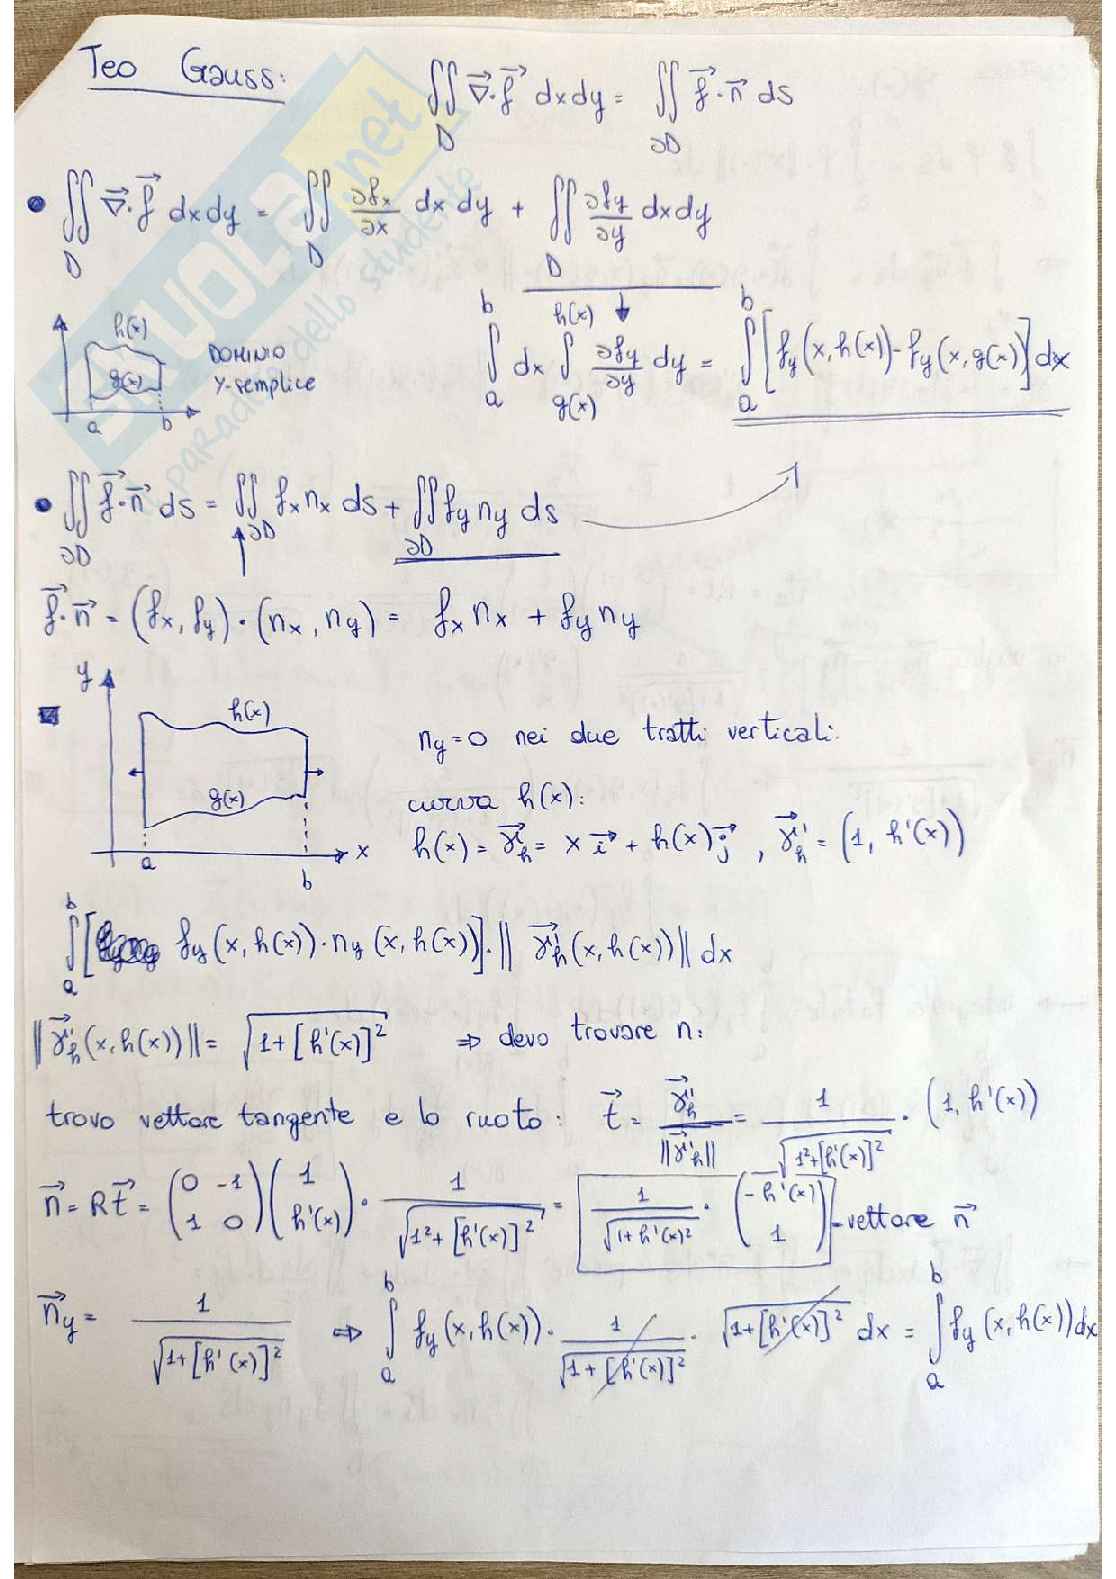 Teo Gauss:
∬_D ∇⃗·f⃗ dxdy = ∬_∂D f⃗·n⃗ ds
• ∬_D ∇⃗·f⃗ dxdy = ∬_D ∂fx/∂x dx dy + ∬_D ∂fy/∂y dxdy
h(x)
g(x)
a b
DOMINIO
y-semplice
∫_a^b dx ∫_g(x)^h(x) ∂fy/∂y dy = ∫_a^b [fy(x,h(x)) - fy(x,g(x))] dx
• ∬_∂D f⃗·n⃗ ds = ∬_∂D fx nx ds + ∬_∂D fy ny ds
f⃗·n⃗ = (fx, fy)·(nx, ny) = fx nx + fy ny
y
h(x)
g(x)
a b x
ny = 0 nei due tratti verticali.
curva h(x):
h(x) = γ⃗h = x i⃗ + h(x) j⃗ , γ⃗'h = (1, h'(x))
∫_a^b [fy(x,h(x))·ny(x,h(x))]·‖γ⃗'h(x,h(x))‖ dx
‖γ⃗'h(x,h(x))‖ = √(1+[h'(x)]²) ⇒ devo trovare n:
trovo vettore tangente e lo ruoto: t⃗ = γ⃗'h/‖γ⃗'h‖ = 1/√(1²+[h'(x)]²) · (1, h'(x))
n⃗ = R t⃗ = (0 -1 1 0)(1 h'(x)) · 1/√(1²+[h'(x)]²) = 1/√(1+h'(x)²) · (-h'(x) 1) - vettore n⃗
n⃗y = 1/√(1+[h'(x)]²) ⇒ ∫_a^b fy(x,h(x))· 1/√(1+[h'(x)]²) · √(1+[h'(x)]²) dx = ∫_a^b fy(x,h(x)) dx
SKUOLA.net
paradiso dello studente